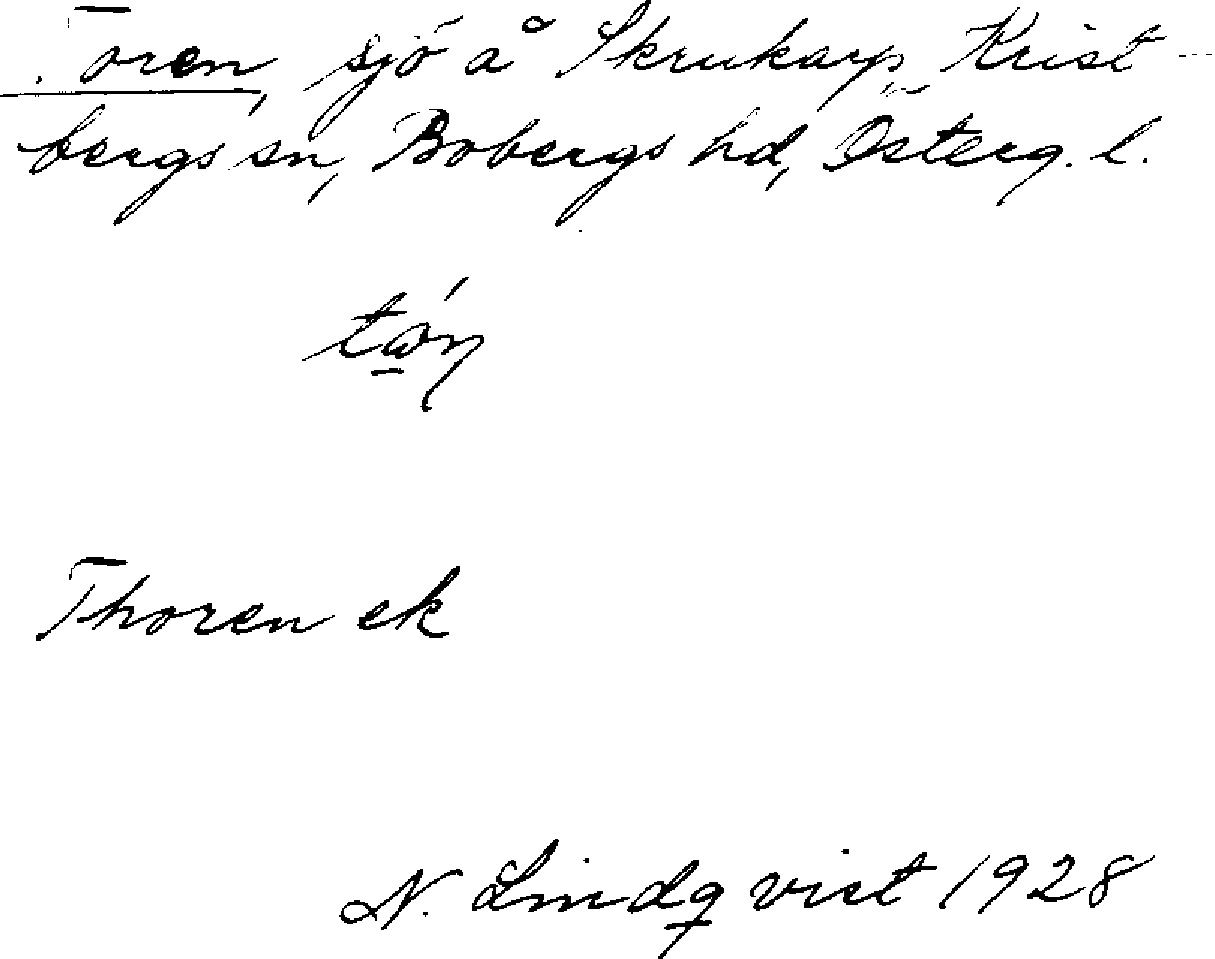 Toren, sjö å Skrukarp, Krist-
bergs sn, Bobergs hd, Österg. l.
Thoren ek
N. Lindqvist 1928